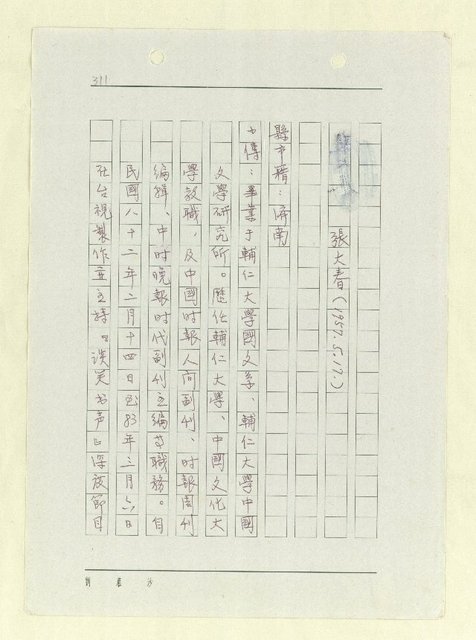 311
張大春(1957.5.7.)
縣市籍:濟南
小傳:畢業于輔仁大學國文系、輔仁大學中國
文學研究所。歷任輔仁大學、中國文化大
學教職,及中國时報人间副刊、时報周刊
編輯、中时晚報时代副刊主編等職務。自
民國八十二年二月十四日至83年三月六日
在台視製作並主持『談笑书声』深夜節目